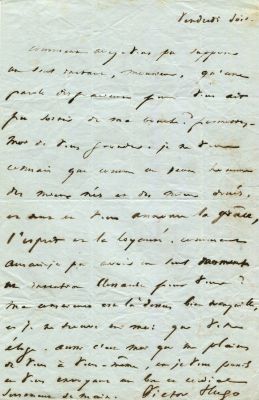 Vendredi soir.
Comment avez-vous pu supposer
un seul instant, monsieur, qu'une
parole défavorable pour vous ait
pu sortir de ma bouche? Permettez-
moi de vous gronder. Je ne vous
connais que comme un jeune homme
des mieux nés et des mieux doués,
et en vous la grâce,
l'esprit et la loyauté. Comment
aurais-je pu avoir un seul moment
une intention blessante pour vous?
Ma conscience est là-dessus bien tranquille,
et je ne trouve en moi que votre
éloge aussi c'est moi qui me plains
de vous à vous-même, en
vous envoyant un bien cordial
serrement de main. Victor Hugo